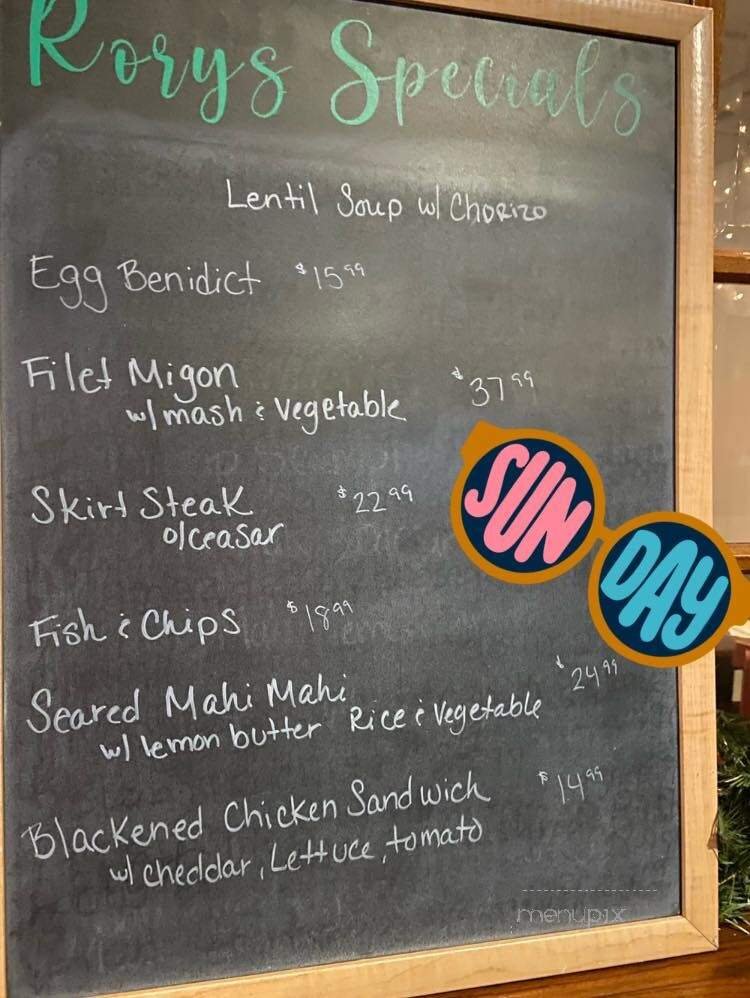 Rorys Specials
Lentil Soup w/ Chorizo
Egg Benidict $15.99
Filet Migon
w/ mash & vegetable $37.99
Skirt Steak $22.99
o/ceasar
SUN
DAY
Fish & Chips $18.99
Seared Mahi Mahi $24.99
w/ lemon butter Rice & Vegetable
Blackened Chicken Sandwich $14.99
w/ cheddar, Lettuce, tomato
menupix